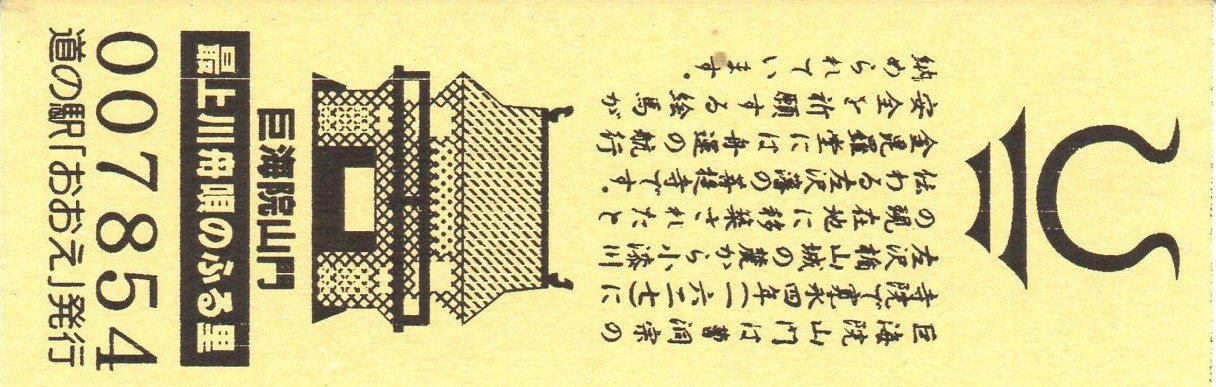 巨海院山門は曹洞宗の
寺院で寛永四年(一六二七)に
左沢楯山城の麓から小漆川
の現在地に移築されたと
伝わる左沢藩の菩提寺です。
金毘羅堂には舟運の航行
安全を祈願する絵馬が
納められています。
巨海院山門
最上川舟唄のふる里
007854
道の駅「おおえ」発行